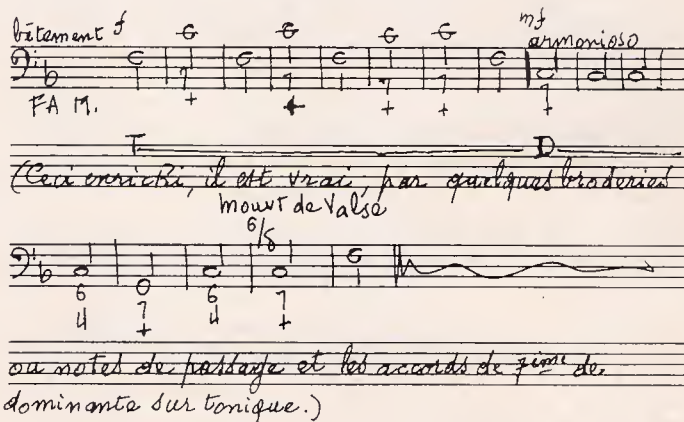 bêtement f G G G G mf
armonioso
7 7 7 7 7
FA M. + + + + +
T D
(Ceci enrichi, il est vrai, par quelques broderies
Mouvt de Valse
6/8
6 7 6 7
4 + 4 +
ou notes de passage et les accords de 7ième de
dominante sur tonique.)